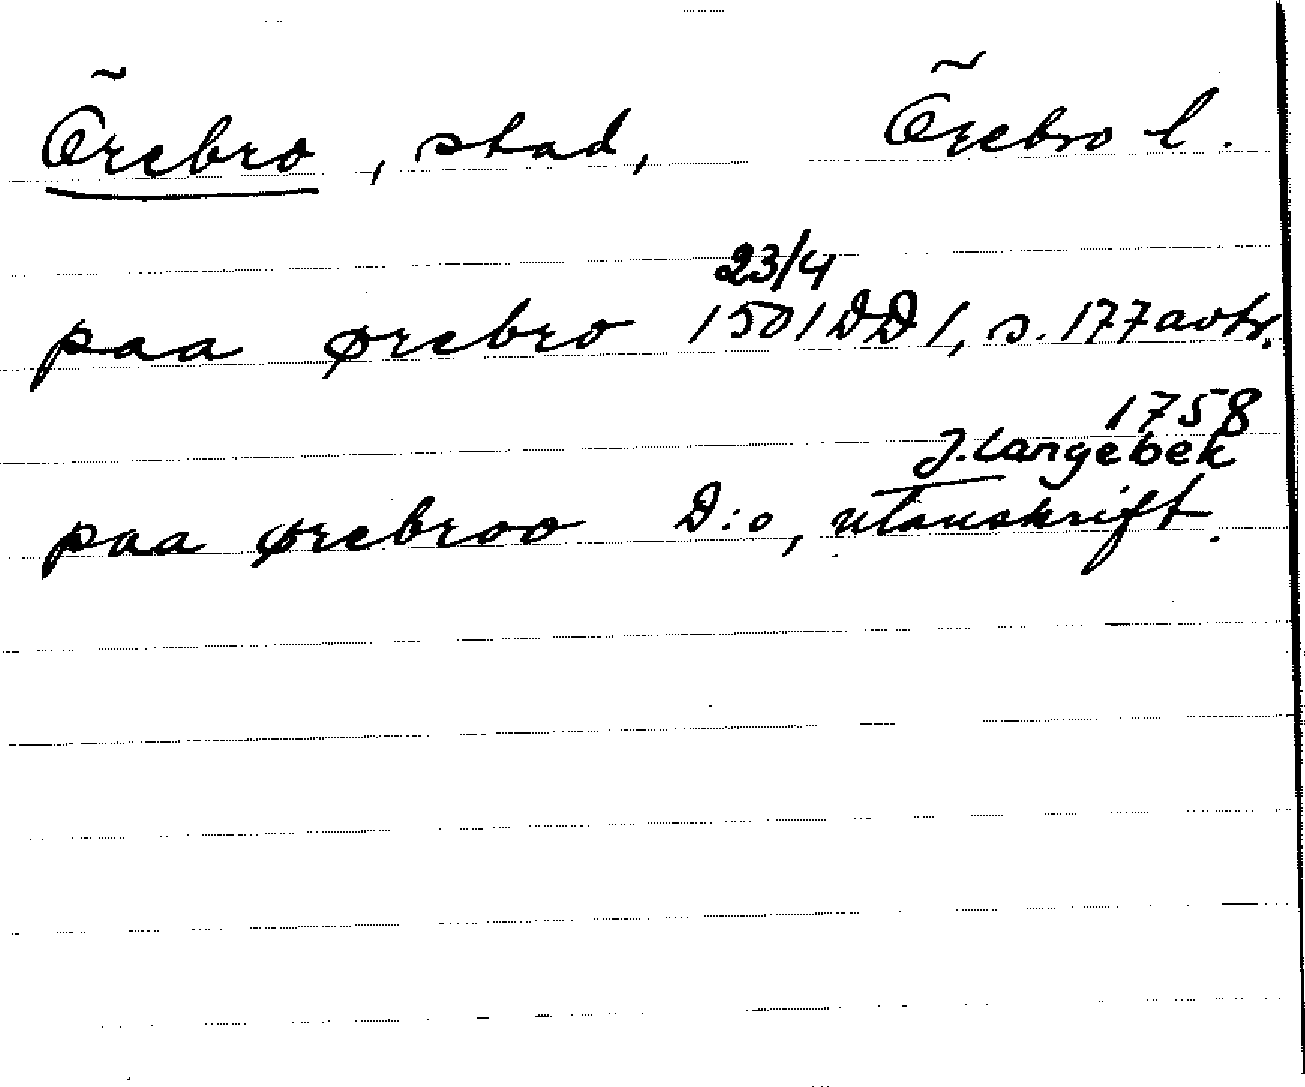 Örebro, stad, Örebro l.
23/4
paa ørebro 1501 DD 1, s. 177 avtr.
1758
J. Langebek
paa ørebroo D:o, utanskrift.